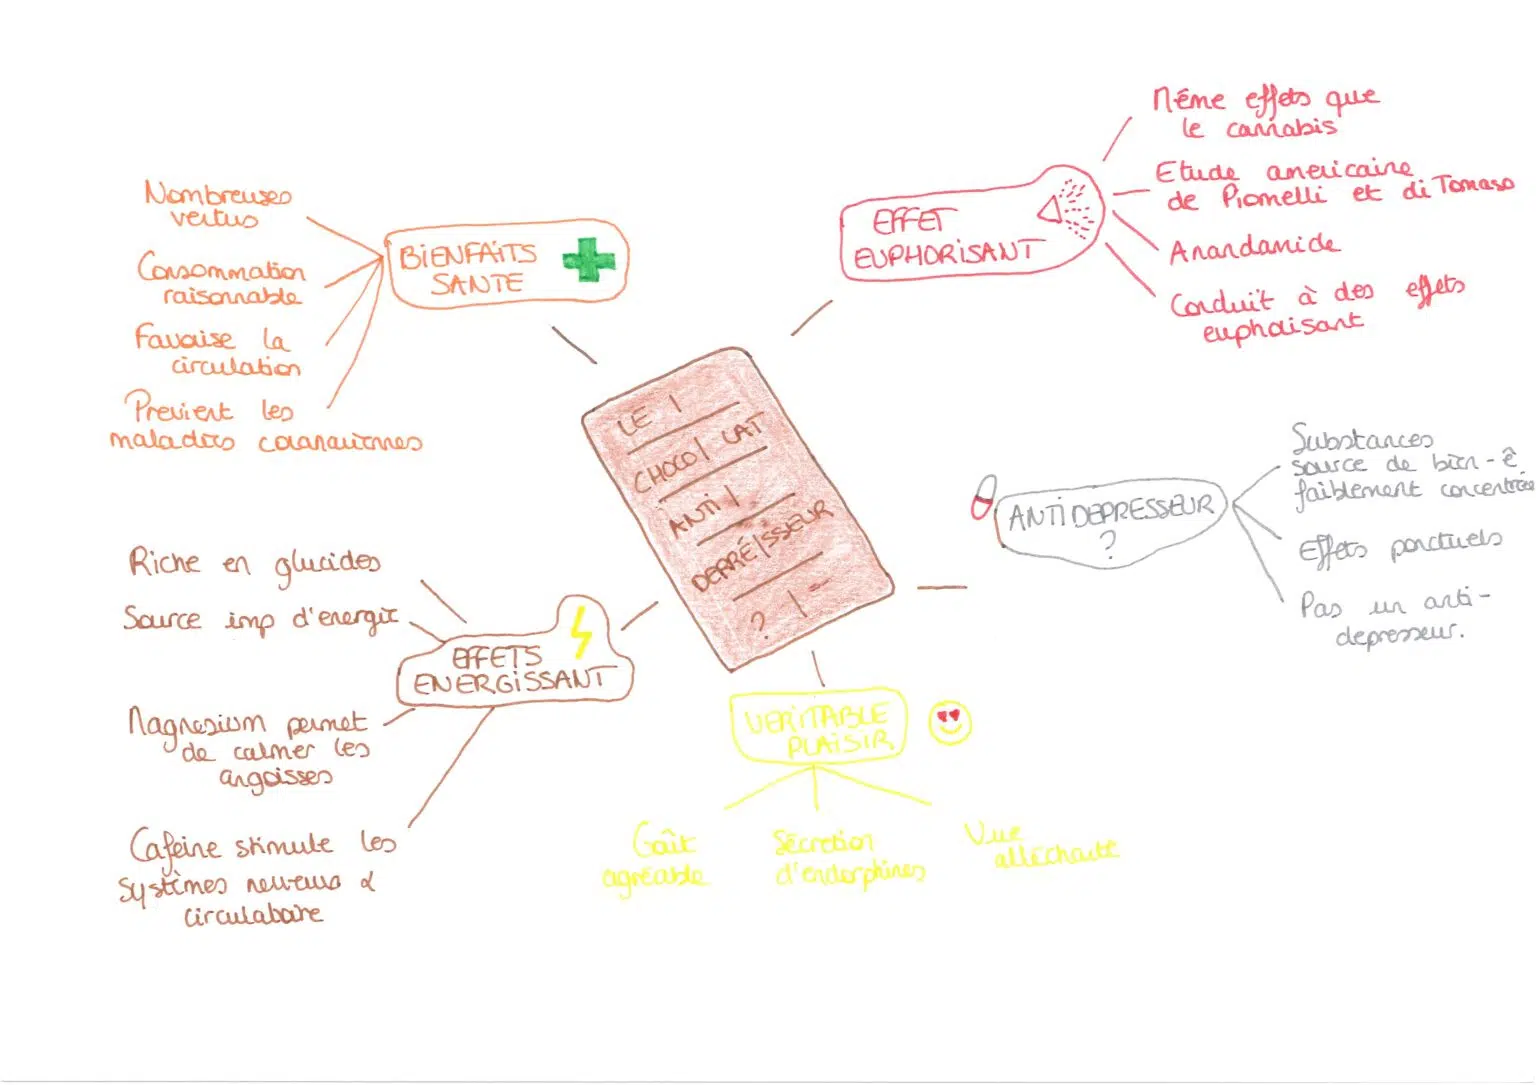 LE
CHOCO LAT
ANTI
DEPRÉSSEUR
?
BIENFAITS
SANTE
Nombreuses
vertus
Consommation
raisonnable
Favorise la
circulation
Previent les
maladies coronariennes
EFFET
EUPHORISANT
Même effets que
le cannabis
Etude americaine
de Piomelli et di Tomaso
Anandamide
Conduit à des effets
euphorisant
ANTIDEPRESSEUR
?
Substances
source de bien-ê
faiblement concentrées
Effets ponctuels
Pas un anti-
depresseur.
VERITABLE
PLAISIR
Goût
agréable
Sécretion
d'endorphines
Vue
alléchante
EFFETS
ENERGISSANT
Riche en glucides
Source imp d'energie
Magnesium permet
de calmer les
angoisses
Cafeine stimule les
systèmes nerveux &
circulatoire